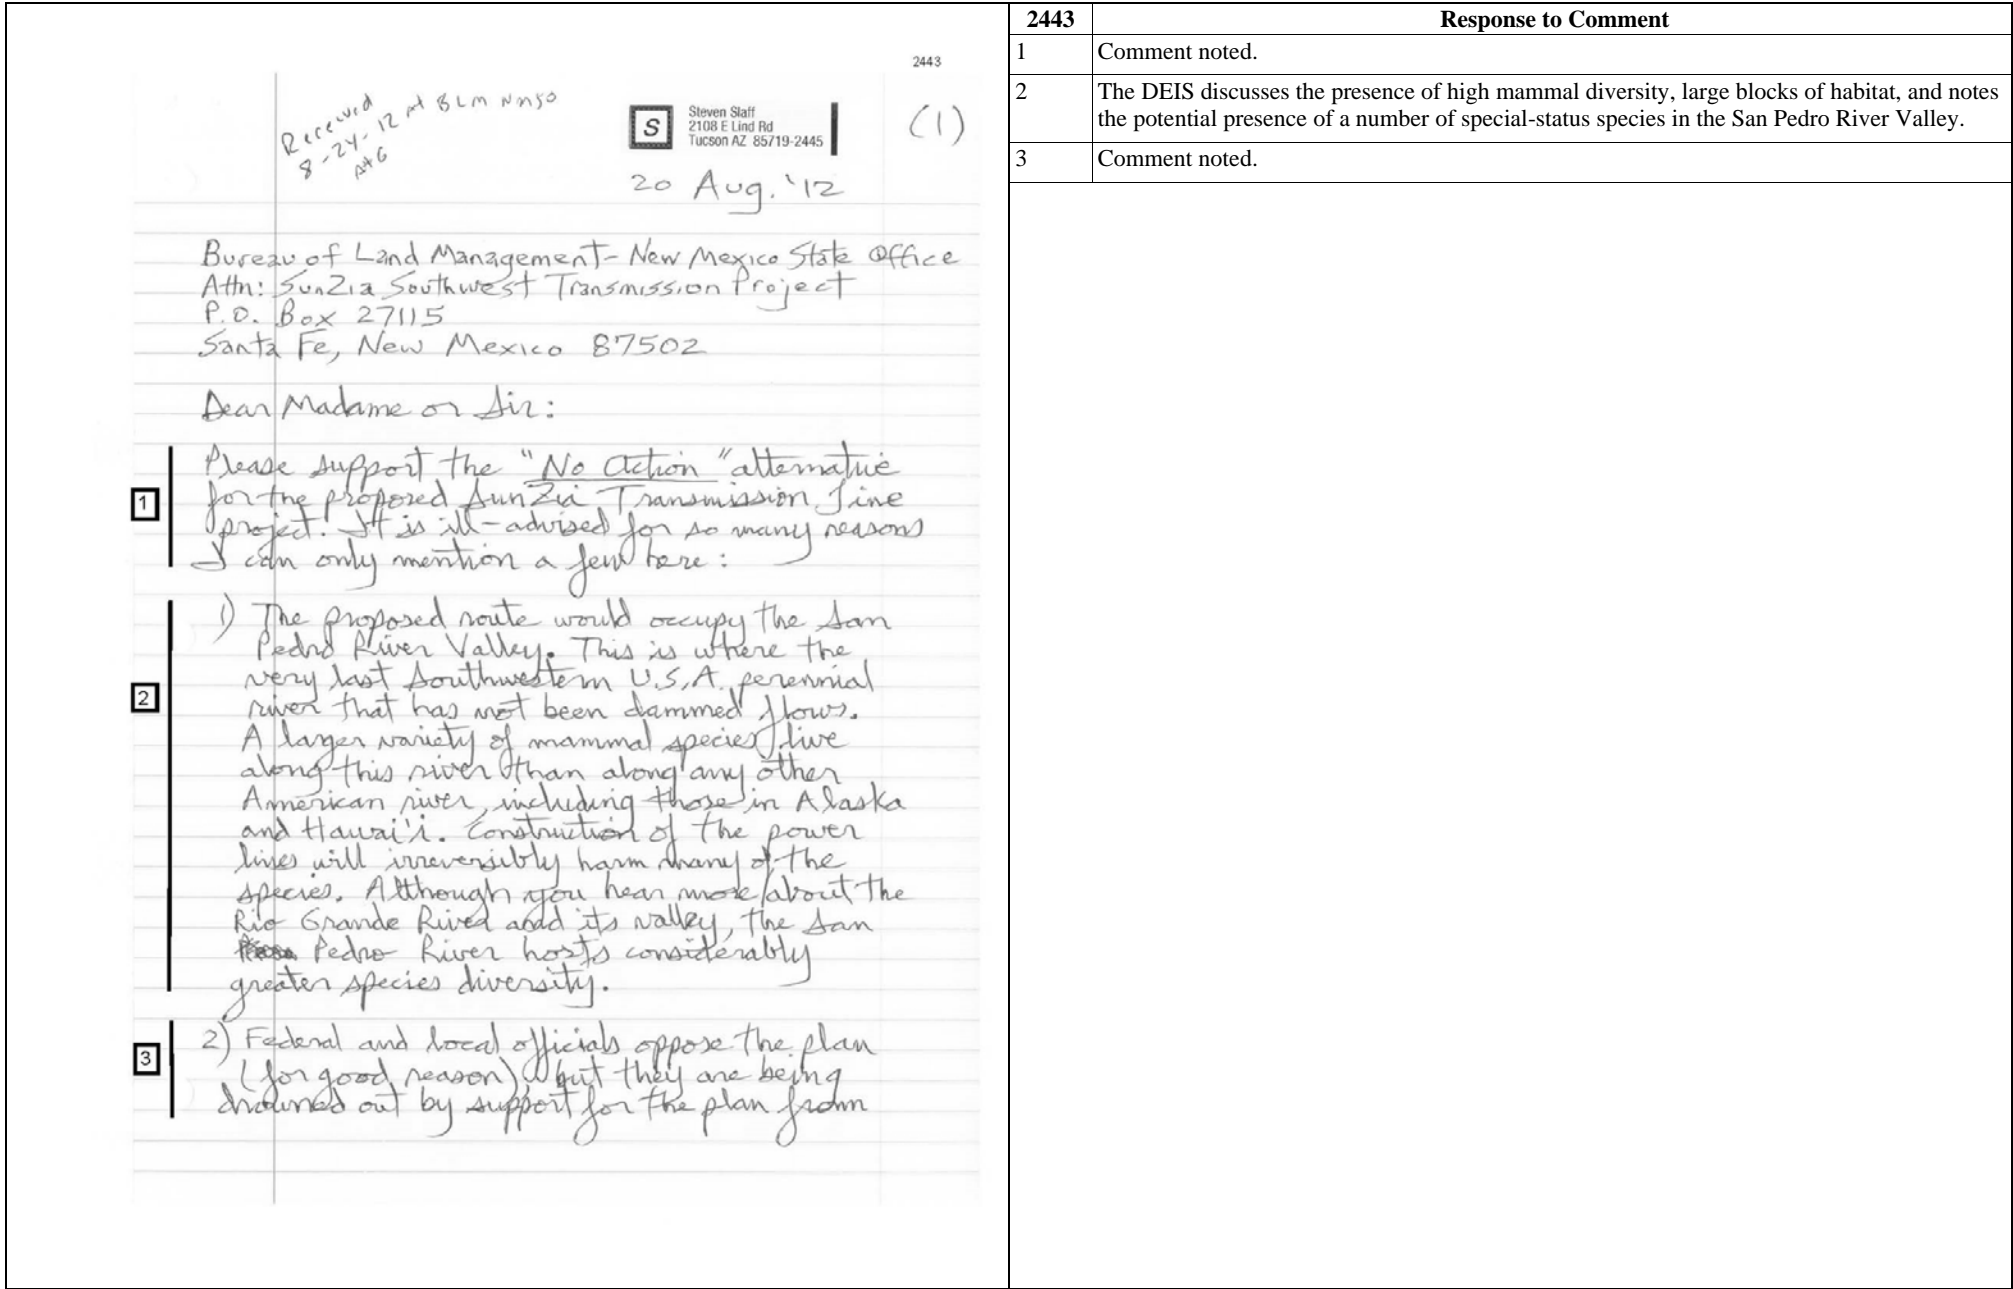 2443
Received
8-24-12 at BLM NMSO
(1)
S
Steven Slaff
2108 E Lind Rd
Tucson AZ 85719-2445
20 Aug. '12
Bureau of Land Management- New Mexico State Office
Attn: SunZia Southwest Transmission Project
P.O. Box 27115
Santa Fe, New Mexico 87502
Dear Madame or Sir:
1
Please support the "No Action" alternative
for the proposed SunZia Transmission Line
project. It is ill-advised for so many reasons
I can only mention a few here:
2
1) The proposed route would occupy the San
Pedro River Valley. This is where the
very last Southwestern U.S.A. perennial
river that has not been dammed flows.
A larger variety of mammal species live
along this river than along any other
American river, including those in Alaska
and Hawai'i. Construction of the power
lines will irreversibly harm many of the
species. Although you hear more about the
Rio Grande River and its valley, the San
Pedro River hosts considerably
greater species diversity.
3
2) Federal and local officials oppose the plan
(for good reason) but they are being
drowned out by support for the plan from
2443 Response to Comment
1 Comment noted.
2 The DEIS discusses the presence of high mammal diversity, large blocks of habitat, and notes
the potential presence of a number of special-status species in the San Pedro River Valley.
3 Comment noted.